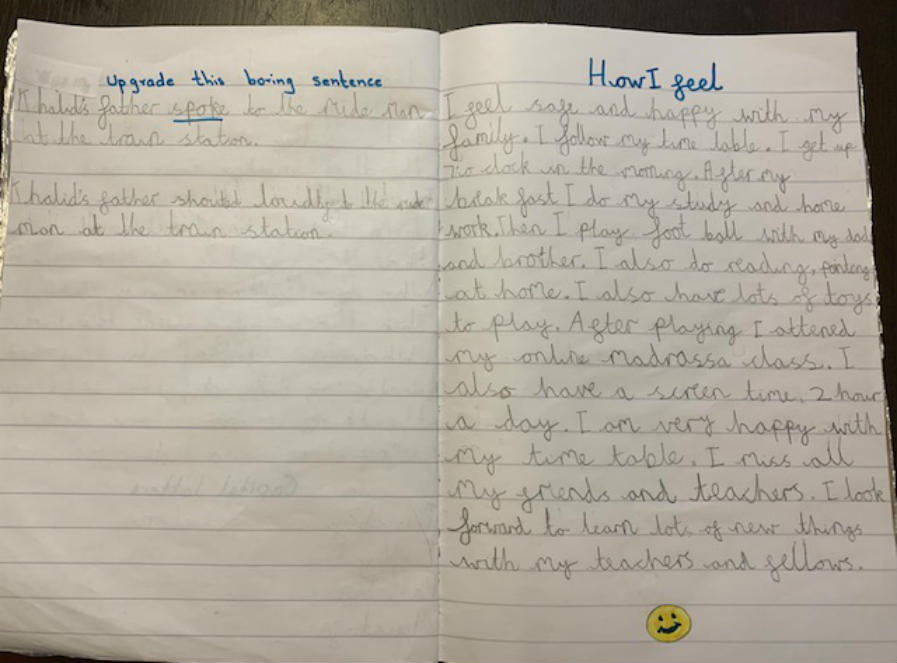 Upgrade this boring sentence
Khalid's father spoke to the rude man
at the train station.
Khalid's father shouted loudly to the rude
man at the train station.
How I feel
I feel safe and happy with my
family. I follow my time table. I get up
o clock in the morning. After my
break fast I do my study and home
work. Then I play foot ball with my dad
and brother. I also do reading, painting
at home. I also have lots of toys
to play. After playing I attened
my online madrassa class. I
also have a screen time, 2 hour
a day. I am very happy with
my time table. I miss all
my friends and teachers. I look
forward to learn lots of new things
with my teachers and fellows.